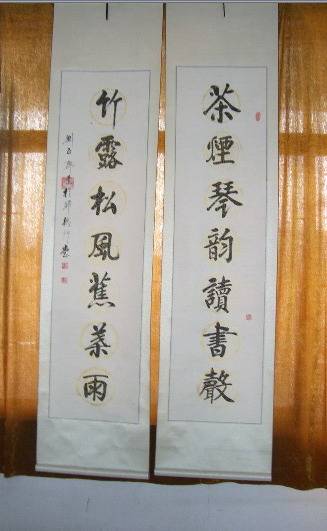 茶煙琴韵讀書聲
竹露松風蕉葉雨